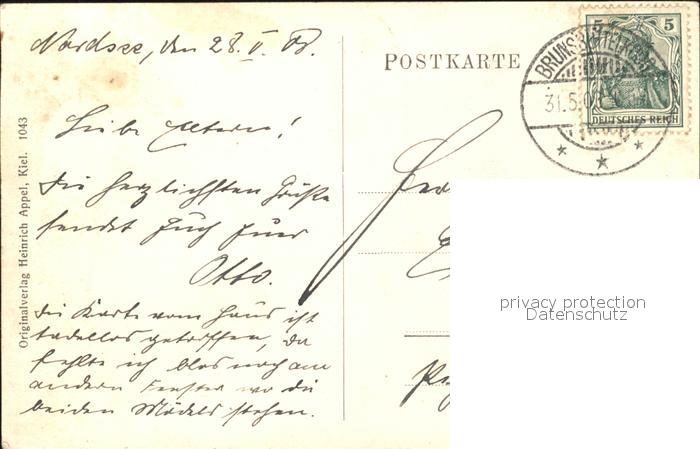 Nordsee, den 28. V. 08.
POSTKARTE
BRUNSBÜTTELKOOG
31.5.0
5 5
DEUTSCHES REICH
Originalverlag Heinrich Appel, Kiel. 1043
Liebe Eltern!
Die herzlichsten Grüße
sendet Euch Euer
Otto.
Die Karte vom Haus ist
tadellos getroffen, da
fehlte ich blos noch am
andern Fenster wo die
beiden Mädels stehen.
privacy protection
Datenschutz